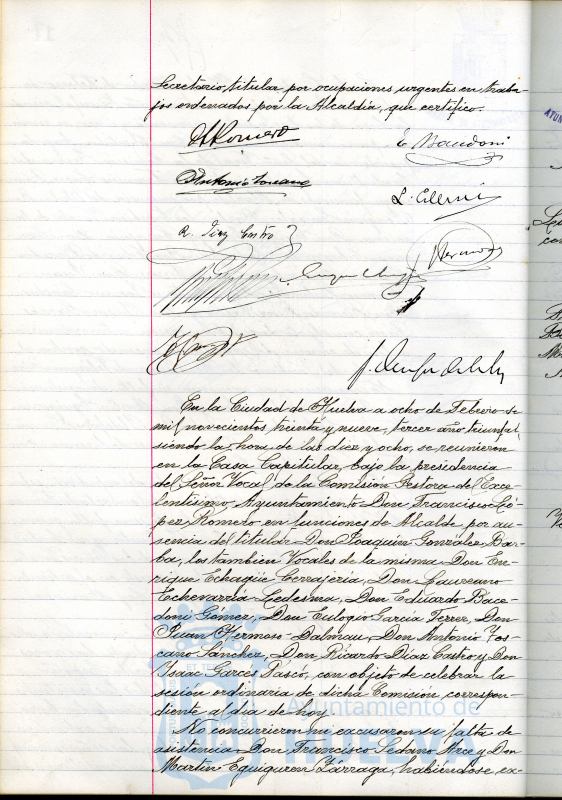 Secretario titular, por ocupaciones urgentes en traba-
jos ordenados por la Alcaldía, que certifico.
A Romero
E Bacedoni
Antonio Toscano
R. Diaz Castro
Hermoso
En la Ciudad de Huelva a ocho de Febrero de
mil novecientos treinta y nueve, tercer año triunfal,
siendo la hora de las diez y ocho, se reunieron
en la Casa Capitular, bajo la presidencia
del Señor Vocal de la Comisión Gestora del Exce-
lentísimo Ayuntamiento Don Francisco Ló-
pez Romero en funciones de Alcalde por au-
sencia del titular Don Joaquín González Bar-
ba, los tambien Vocales de la misma Don En-
rique Echagüe Cerrajeria, Don Laureano
Echevarría Ledesma, Don Eduardo Bace-
doni Gómez, Don Eulogio García Terrer, Don
Juan Hermoso Dalmau, Don Antonio Tos-
cano Sánchez, Don Ricardo Díaz Castro y Don
Isaac Garcés Pascó, con objeto de celebrar la
sesión ordinaria de dicha Comisión correspon-
diente al día de hoy.
No concurrieron ni excusaron su falta de
asistencia Don Francisco Sedano Arce y Don
Martín Equiguren Zárraga, habiéndose ex-
Ayuntamiento de